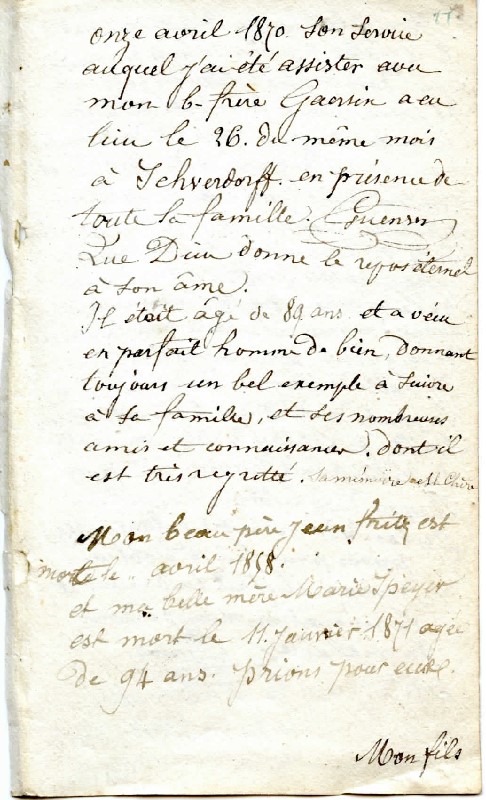 27.
onze avril 1870. Son Service
auquel j'ai été assister avec
mon b-frère Gaersin a eu
lieu le 26. du même mois
à Schverdorff. en présence de
toute la famille. Guenser
Que Dieu donne le repos éternel
à son âme.
Il était âgé de 80 ans et a vécu
en parfait homme de bien, donnant
toujours un bel exemple à suivre
à sa famille, et ses nombreuses
amis et connaissances. dont il
est très regretté. sa mémoire est
Mon beau père jean fritz est
mort le .. avril 1858.
et ma belle mère Marie Speyer
est mort le 11. janvier 1871 agée
de 94 ans. prions pour eux.
Mon fils